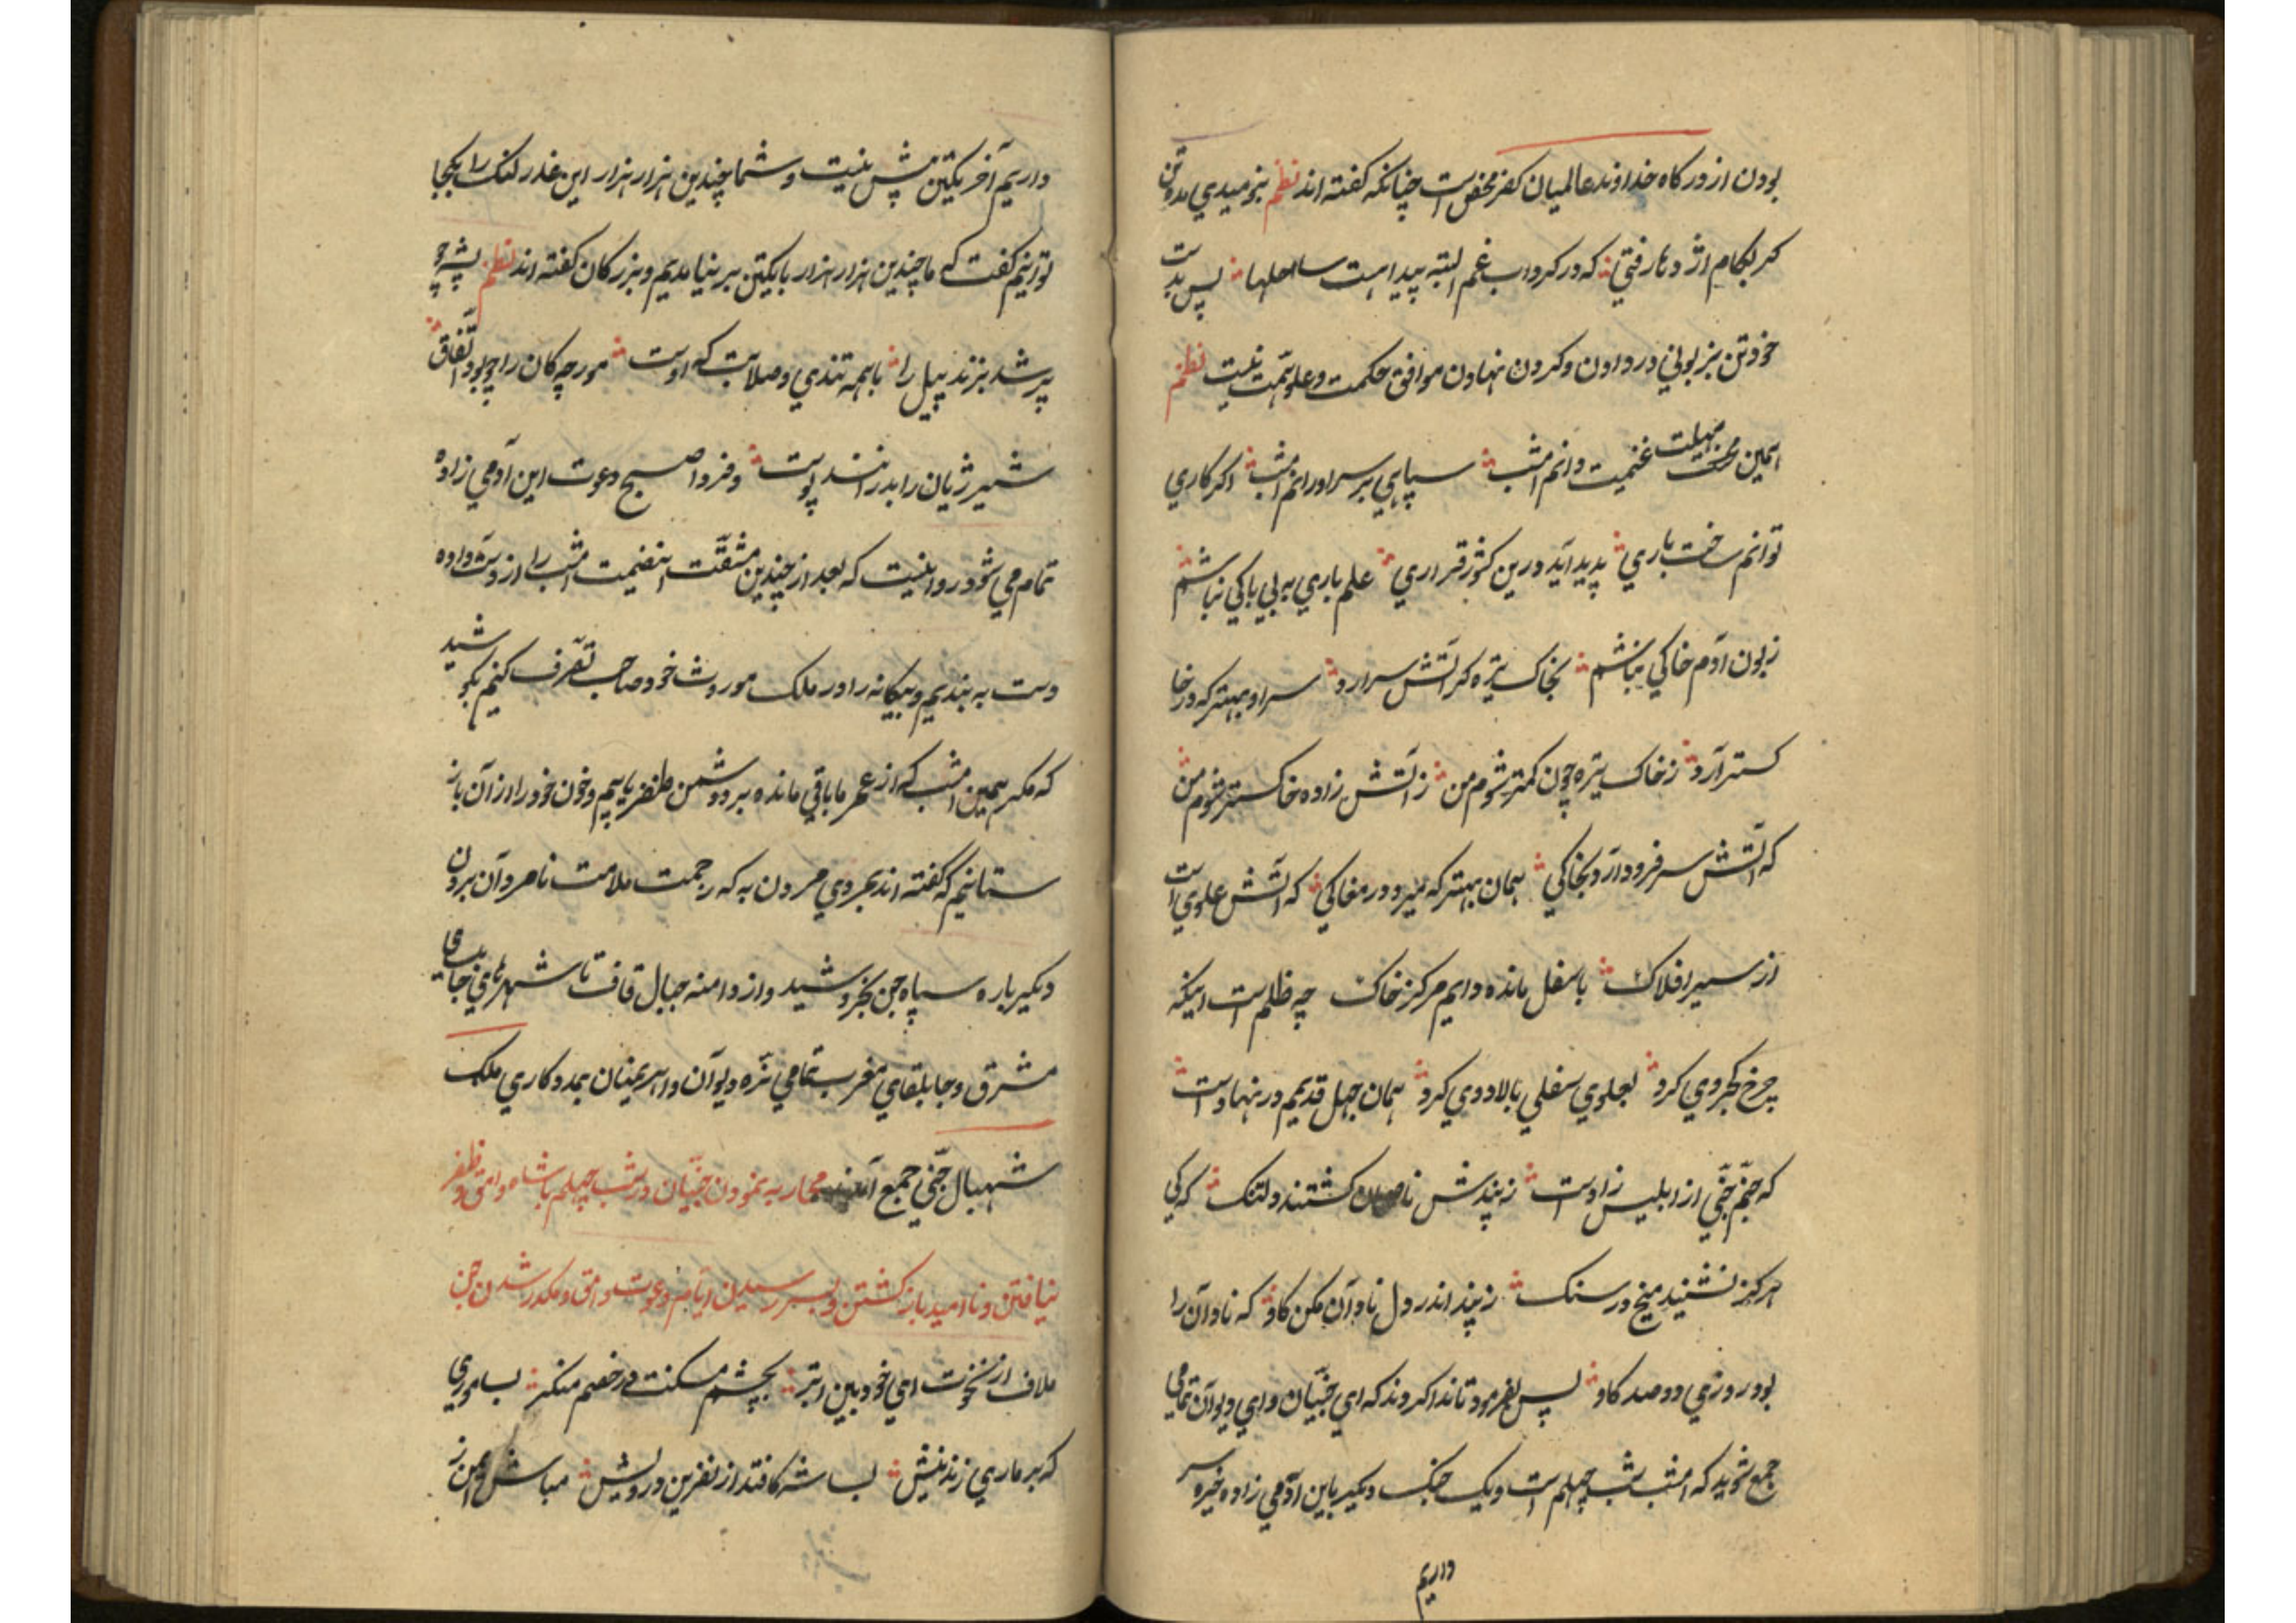 بودن از درکاه خداوند عالمیان کفر محض است چنانکه کفته اند نظم بنومیدی مده تن
کر بکام اژدها رفتی که در کرداب غم البته پیدا هست ساحلها پس بدست
خود تن بزبونی در دادن و کردن نهادن موافق حکمت و علو همت نیست نظم
همین مهلت غنیمت دانم امشب سپاهی بر سر او رانم امشب اکر کاری
توانم ساخت باری پدید آید درین کشور قراری علم باری به بی باکی نباشم
زبون آدم خاکی نباشم بخاک تیره کر آتش سر آرد سر او بهتر که در خا
کستر آرد ز خاک تیره چون کمتر شوم من ز آتش زاده خاکستر شوم من
که آتش سر فرود آرد بخاکی همان بهتر که میرد در مغاکی که آتش علوی است
از سیر افلاک باسفل مانده دایم مرکز خاک چه ظلم است اینکه
چرخ کجروی کرد بعلوی سفلی بالادوی کرد همان جهل قدیم در نهاد است
که جنم جنی از ابلیس زاد است ز پندش ناصحان کشتند دلتنک که کی
هرکز نشیند میخ در سنک ز پند اندر دل نادان مکن کاو که نادان را
بود روزی دو صد کاو پس بفرمود تا ندا کردند که ای جنیان و ای دیوان تمامی
جمع شوید که امشب شب چهلم است و یک جنک دیکر باین آدمی زاده خیره سر
داریم
داریم آخر یکتن پیش نیست و شما چندین هزار هزار این عذر لنک را بکجا
توانیم کفت که ما چندین هزار هزار با یکتن بر نیامدیم و بزرکان کفته اند نظم پشه چو
پر شد بزند پیل را با همه تندی و صلابت که اوست مورچکان را چو بود اتفاق
شیر ژیان را بدرانند پوست و فردا صبح دعوت این آدمی زاده
تمام می شود روا نیست که بعد از چندین مشقت اینغنیمت امشب را از دست داده
دست به بندیم و بیکانه را در ملک موروث خود صاحب تصرف کنیم بکوشید
که مکر همین امشب که از عمر ما باقی مانده بر دشمن ظفر یابیم و خون خود را از آن باز
ستانیم که کفته اند بمردی مردن به که زحمت ملامت نامردان بردن
دیکر باره سپاه جن بخروشید و از دامنه جبال قاف تا شهرهای جابلسای
مشرق و جابلقای مغرب تمامی نره دیوان و اهریمنان بمددکاری ملک
شهبال جنی جمع آمدند محاربه نمودن جنیان در شب چهلم با شاه وامق و ظفر
نیافتن و نا امید باز کشتن و بسر رسیدن ایام دعوت وامق و مکدر شدن جن
ملاف از نخوت ای خودبین ابتر بچشم مسکنت در خصم منکر بسا موری
که بر ماری زند نیش بسا شه کافتد از نفرین درویش مباش ایمن ز